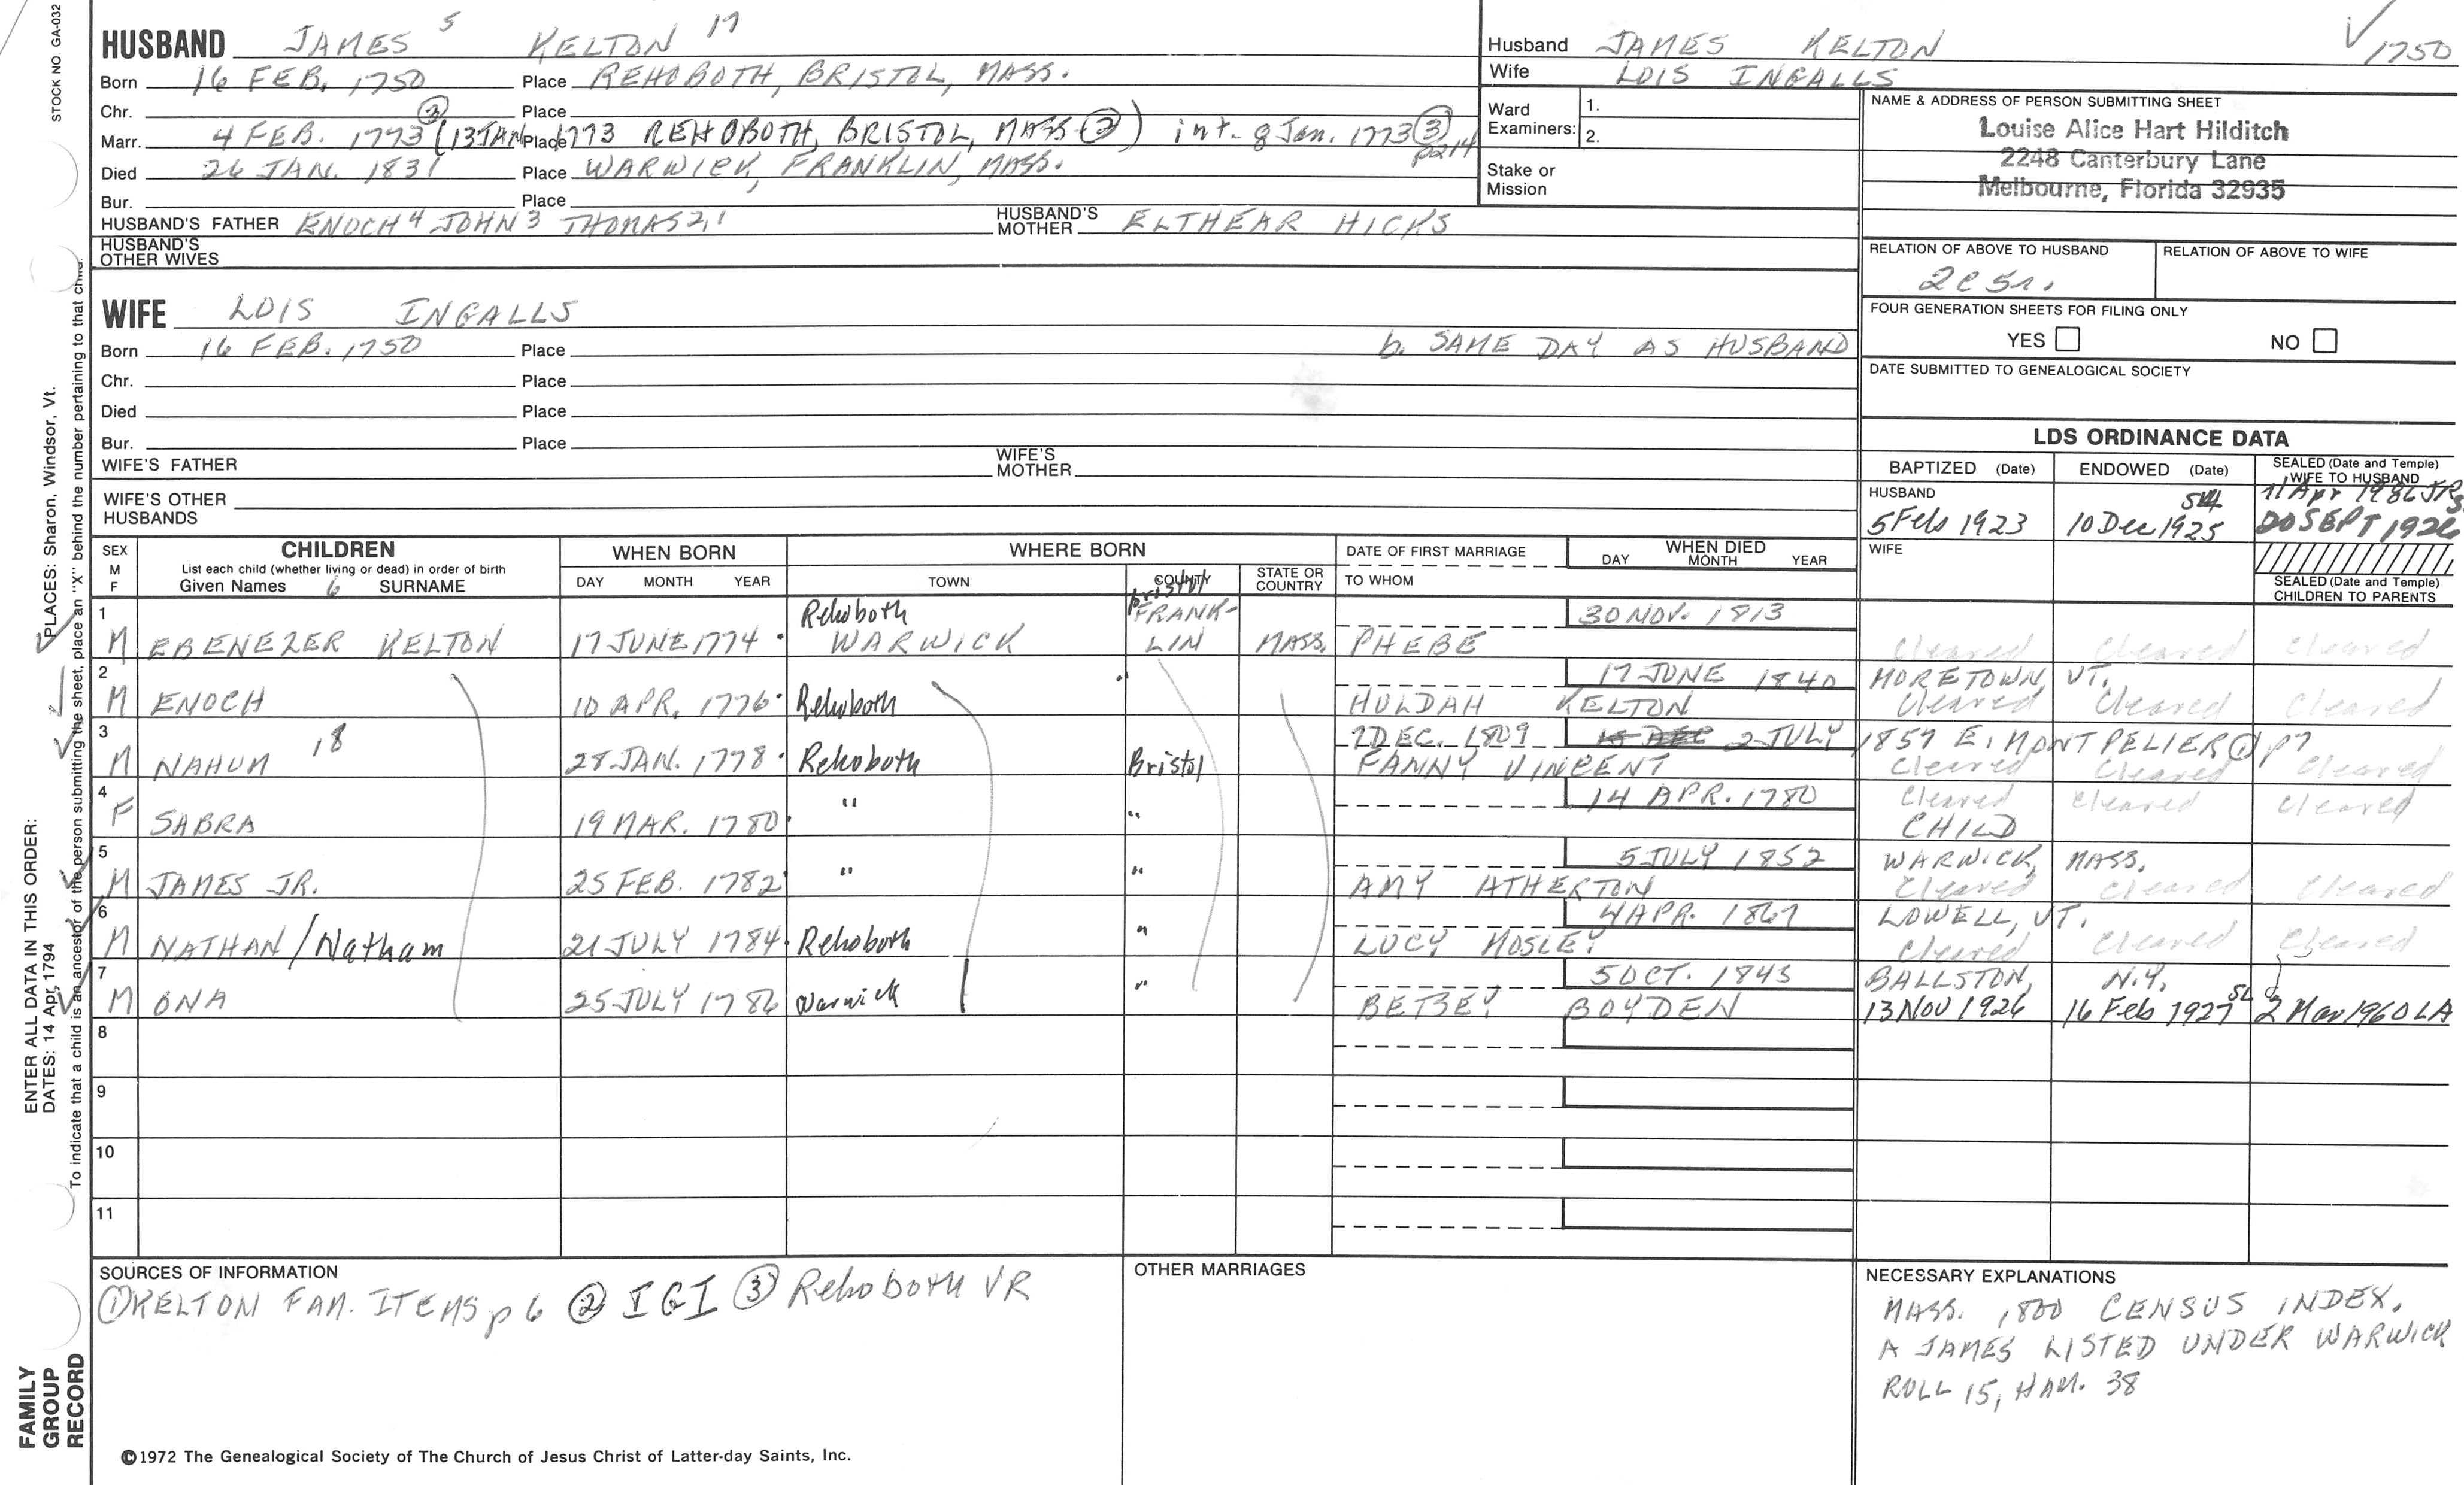 STOCK NO. GA-032
HUSBAND JAMES 5 KELTON 17
Born 16 FEB. 1750 Place REHOBOTH, BRISTOL, MASS.
Chr. Place
Marr. 4 FEB. 1773 ③ (13 JAN Place 1773 REHOBOTH, BRISTOL, MASS ②) int. 8 Jan. 1773 ③ p214
Died 26 JAN. 1831 Place WARWICK, FRANKLIN, MASS.
Bur. Place
HUSBAND'S FATHER ENOCH 4 JOHN 3 THOMAS 2,1 HUSBAND'S MOTHER ELTHEAR HICKS
HUSBAND'S OTHER WIVES
Husband JAMES KELTON 1750
Wife LOIS INGALLS
Ward Examiners: 1.
2.
Stake or Mission
NAME & ADDRESS OF PERSON SUBMITTING SHEET
Louise Alice Hart Hilditch
2248 Canterbury Lane
Melbourne, Florida 32935
RELATION OF ABOVE TO HUSBAND RELATION OF ABOVE TO WIFE
2C 5r.
FOUR GENERATION SHEETS FOR FILING ONLY
YES NO
DATE SUBMITTED TO GENEALOGICAL SOCIETY
WIFE LOIS INGALLS
Born 16 FEB. 1750 Place b. SAME DAY AS HUSBAND
Chr. Place
Died Place
Bur. Place
WIFE'S FATHER WIFE'S MOTHER
WIFE'S OTHER HUSBANDS
LDS ORDINANCE DATA
BAPTIZED (Date) ENDOWED (Date) SEALED (Date and Temple) WIFE TO HUSBAND
HUSBAND 11 Apr 1986
5 Feb 1923 10 Dec 1925 20 SEPT 1926
WIFE
SEALED (Date and Temple) CHILDREN TO PARENTS
SEX M F CHILDREN WHEN BORN WHERE BORN DATE OF FIRST MARRIAGE WHEN DIED
List each child (whether living or dead) in order of birth
Given Names 6 SURNAME DAY MONTH YEAR TOWN COUNTY STATE OR COUNTRY TO WHOM DAY MONTH YEAR
1 Rehoboth Bristol FRANK- 30 NOV. 1813
M EBENEZER KELTON 17 JUNE 1774 WARWICK LIN MASS. PHEBE Cleared Cleared Cleared
2 " 17 JUNE 1840 MORETOWN VT.
M ENOCH 10 APR. 1776 Rehoboth HULDAH KELTON Cleared Cleared Cleared
3 7 DEC. 1809 2 JULY 1857 E. MONTPELIER ① p7
M NAHUM 18 28 JAN. 1778 Rehoboth Bristol FANNY VINCENT Cleared Cleared Cleared
4 " " 14 APR. 1780 Cleared Cleared Cleared
F SABRA 19 MAR. 1780 CHILD
5 " " 5 JULY 1852 WARWICK, MASS.
M JAMES JR. 25 FEB. 1782 AMY ATHERTON Cleared Cleared Cleared
6 4 APR. 1867 LOWELL, VT.
M NATHAN / Natham 21 JULY 1784 Rehoboth " LUCY MOSLEY Cleared Cleared Cleared
7 5 OCT. 1843 BALLSTON, N.Y.
M ONA 25 JULY 1786 Warwick " BETSEY BOYDEN 13 Nov 1926 16 Feb 1927 SL 2 Mar 1960 LA
8
9
10
11
SOURCES OF INFORMATION
① KELTON FAM. ITEMS p 6 ② IGI ③ Rehoboth VR
OTHER MARRIAGES
NECESSARY EXPLANATIONS
MASS. 1800 CENSUS INDEX.
A JAMES LISTED UNDER WARWICK
ROLL 15, HAM. 38
©1972 The Genealogical Society of The Church of Jesus Christ of Latter-day Saints, Inc.
FAMILY GROUP RECORD
ENTER ALL DATA IN THIS ORDER:
DATES: 14 Apr. 1794
PLACES: Sharon, Windsor, Vt.
To indicate that a child is an ancestor of the person submitting the sheet, place an "X" behind the number pertaining to that child.